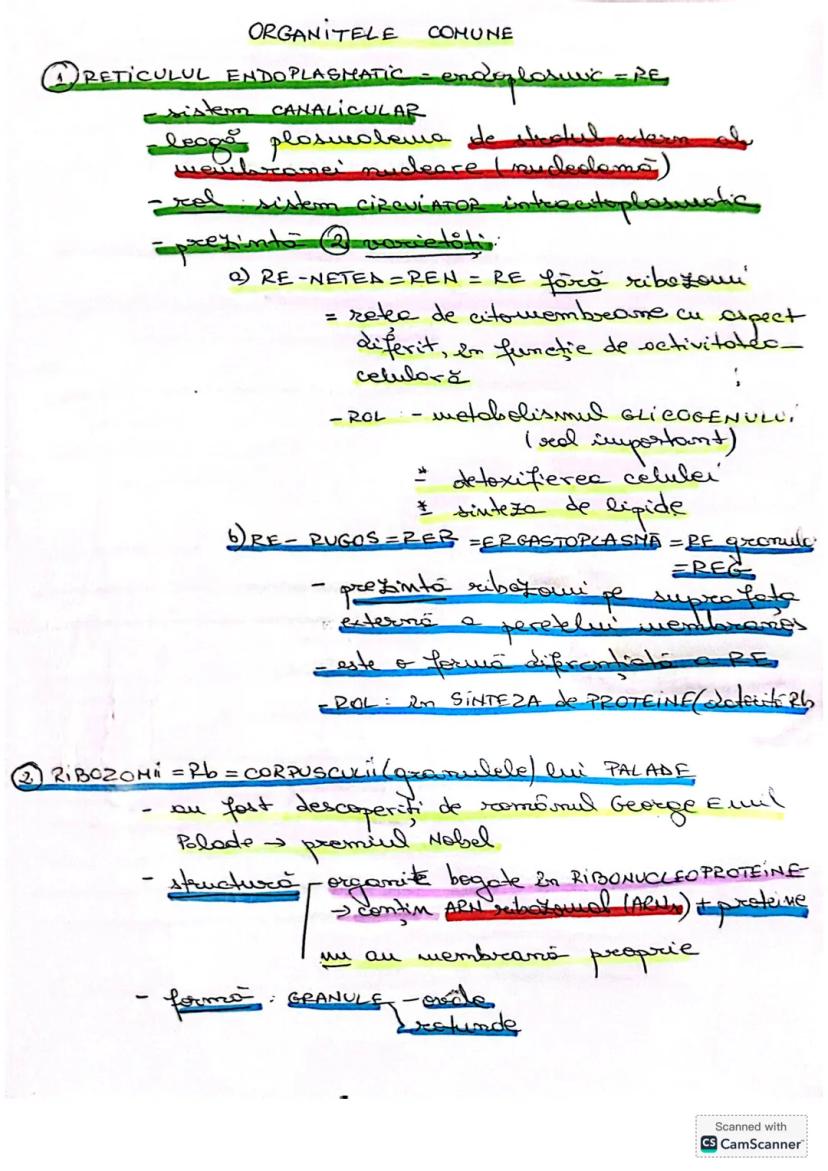 ORGANITELE COMUNE
① RETICULUL ENDOPLASMATIC = endoplasmic = RE
- sistem CANALICULAR
- leagă plasmalema de stratul extern al
membranei nucleare (nucleolamă)
- rol: sistem CIRCULATOR intracitoplasmatic
- prezintă ② varietăți:
a) RE-NETED = REN = RE fără ribozomi
= rețea de citomembrane cu aspect
diferit, în funcție de activitatea
celulară ;
- ROL : - metabolismul GLICOGENULUI
(rol important)
* detoxifierea celulei
* sinteza de lipide
b) RE-RUGOS = RER = ERGASTOPLASMĂ = RE granula
= REG
- prezintă ribozomi pe suprafața
externă a peretelui membranos
- este o formă difrențiată a RE
- ROL: în SINTEZA de PROTEINE (datorită Rb
② RIBOZOMII = Rb = CORPUSCULII (granulele) lui PALADE
- au fost descoperiți de românul George Emil
Palade → premiul Nobel
- structură organite bogate în RIBONUCLEOPROTEINE
→ conțin ARN ribozomal (ARNr) + proteine
nu au membrană proprie
- formă : GRANULE - ovale
rotunde
Scanned with
CS CamScanner